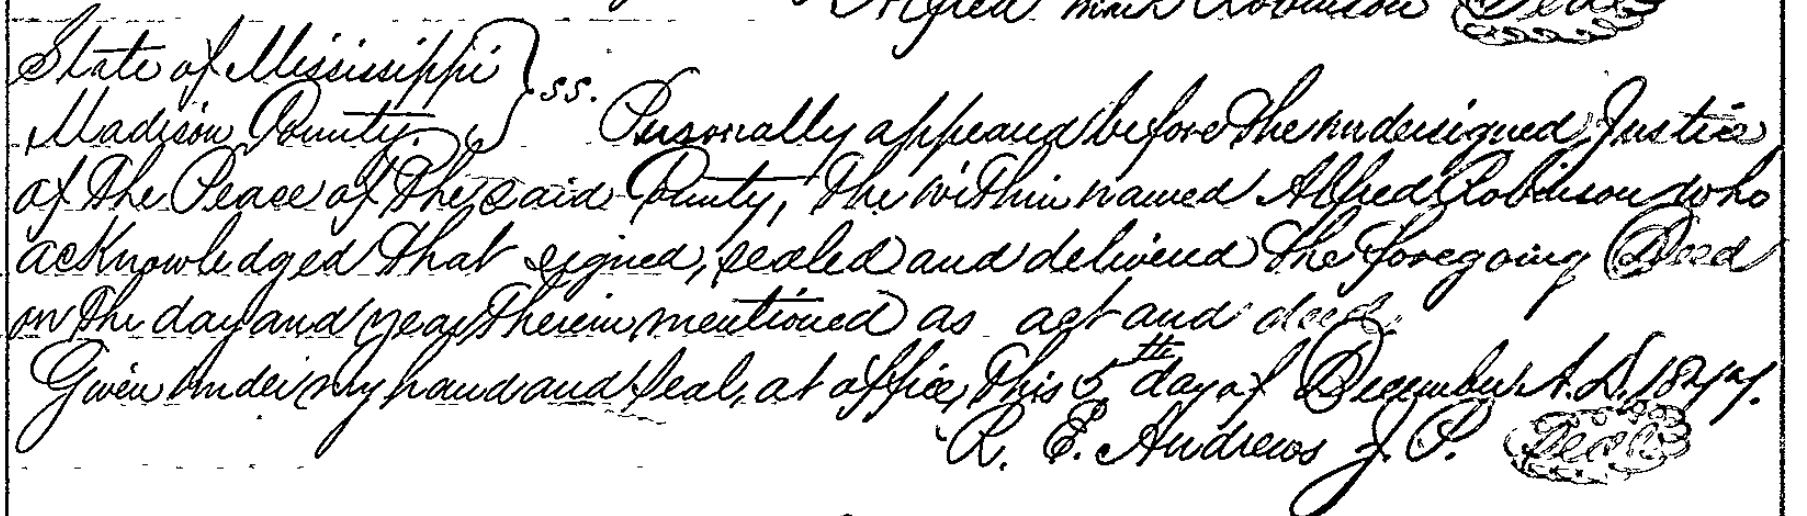 Alfred mark Robinson Seal
State of Mississippi
ss.
Madison County. Personally appeared before the undersigned, Justice
of the Peace of the said County, the within named Alfred Robinson who
acknowledged that signed, sealed and delivered the foregoing Deed
on the day and year therein mentioned as act and deed.
Given under my hand and Seal, at office, this 5th day of December A.D.
R. E. Andrews J. P. Seal